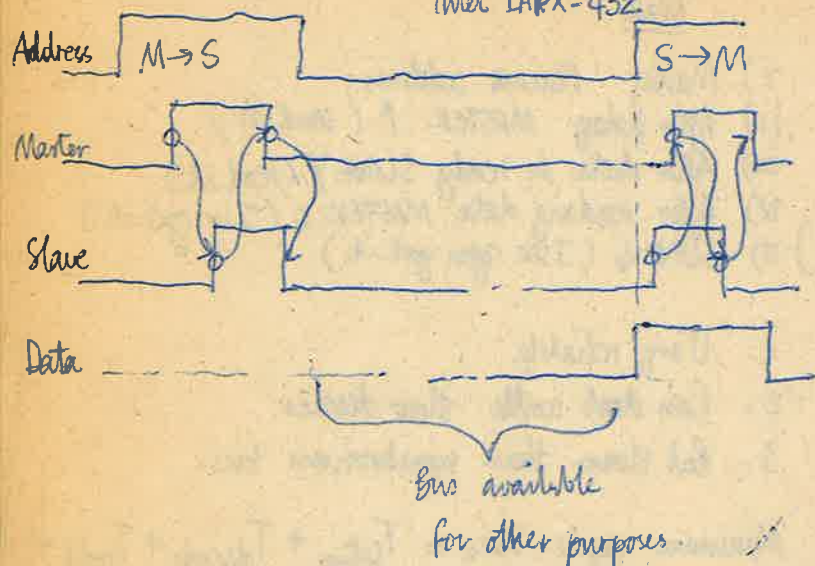 Intel iAPX-432
Address M→S S→M
Master
Slave
Data
Bus available
for other purposes.